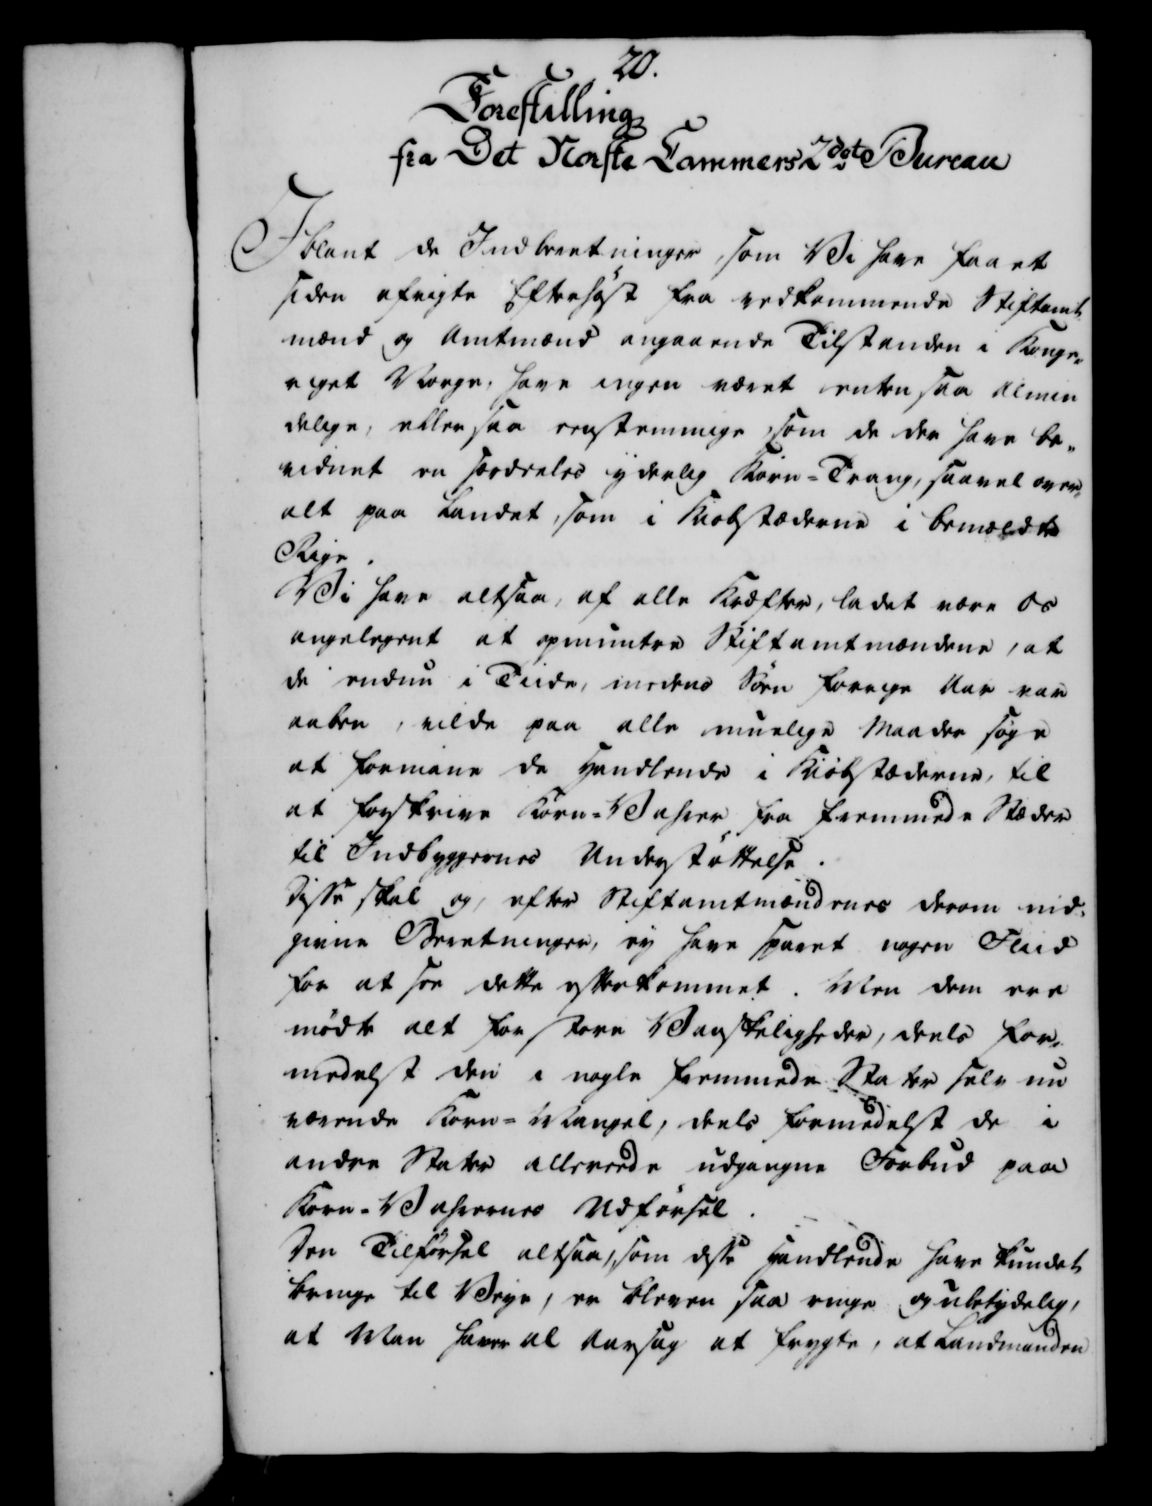 20.
Forestilling
fra Det Norske Cammers 2det Bureau
Iblant de Indberetninger, som Vi have faaet
siden afvigte Efterhøst fra vedkommende Stiftamt
mænd og Amtmænd angaaende Tilstanden i Konge-
riget Norge, have ingen været enten saa almin
delige, eller saa eenstemmige, som de der have be-
vidnet en særdeeles yderlig Korn-Trang, saavel over-
alt paa Landet, som i Kiøbstæderne i bemældte
Rige.
Vi have altsaa, af alle Kræfter, ladet være os
angelegent at opmuntre Stiftamtmændene, at
de endnu i Tiide, medens Søen forrige Aar var
aaben, vilde paa alle muelige Maader søge
at formane de Handlende i Kiøbstæderne, til
at forskrive Korn-Vahrer fra fremmede Stæder
til Indbyggernes Understøttelse.
Disse skal og, efter Stiftamtmændenes derom ind-
givne Beretninger, ey have sparet nogen Fliid
for at see dette efterkommet. Men dem ere
mødte alt for store Vanskeligheder, deels for-
medelst den i nogle fremmede Stater selv nu
værende Korn-Mangel, deels formedelst de i
andre Stater allereede udgangne Forbud paa
Korn-Vahrernes Udførsel.
Den Tilførsel altsaa, som disse Handlende have kundet
bringe til Veye, er bleven saa ringe og ubetydelig,
at Man haver al Aarsag at frygte, at Landmanden